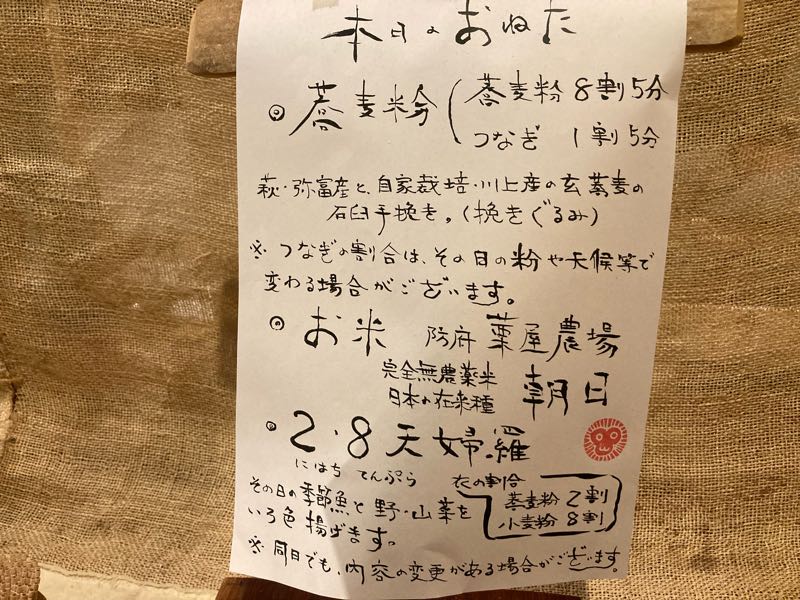 本日のおねた
◎ 蕎麦粉 ( 蕎麦粉 8割5分
つなぎ 1割5分
萩・弥富産と、自家栽培・川上産の玄蕎麦の
石臼手挽き。(挽きぐるみ)
※ つなぎの割合は、その日の粉や天候等で
変わる場合がございます。
◎ お米 防府 薬屋農場
完全無農薬米
日本の在来種 朝日
◎ 2・8天婦羅
にはち てんぷら
衣の割合
蕎麦粉 2割
小麦粉 8割
その日の季節魚と野・山菜を
いろ色揚げます。
※ 同日でも、内容の変更がある場合がございます。